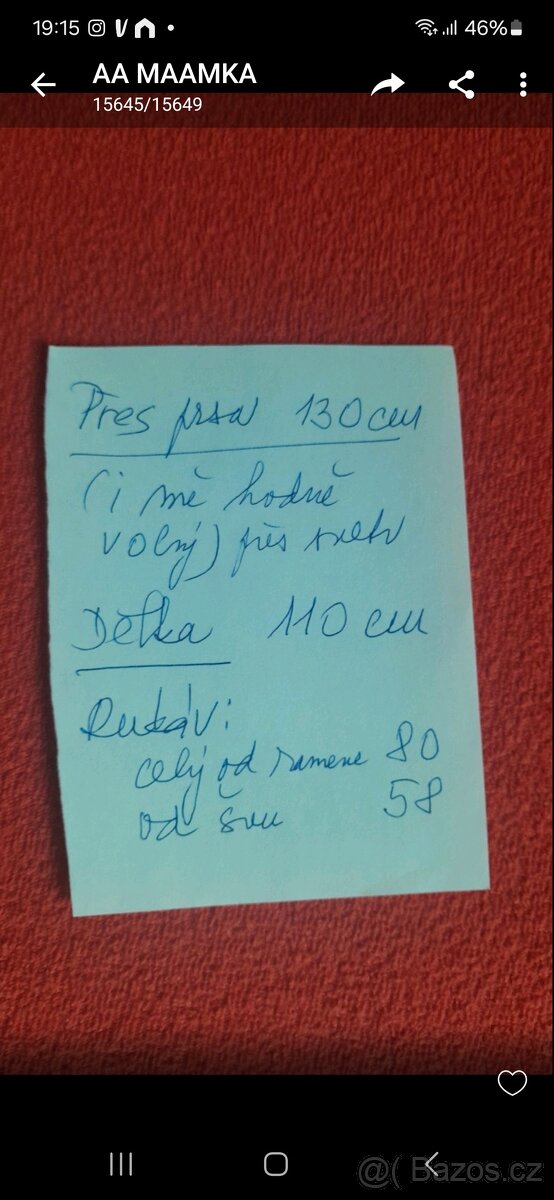 19:15
46%
AA MAAMKA
15645/15649
Přes prsa 130 cm
(i mě hodně
volný) přes svetr
Délka 110 cm
Rukáv:
celý od ramene 80
od švu 58
@( Bazos.cz